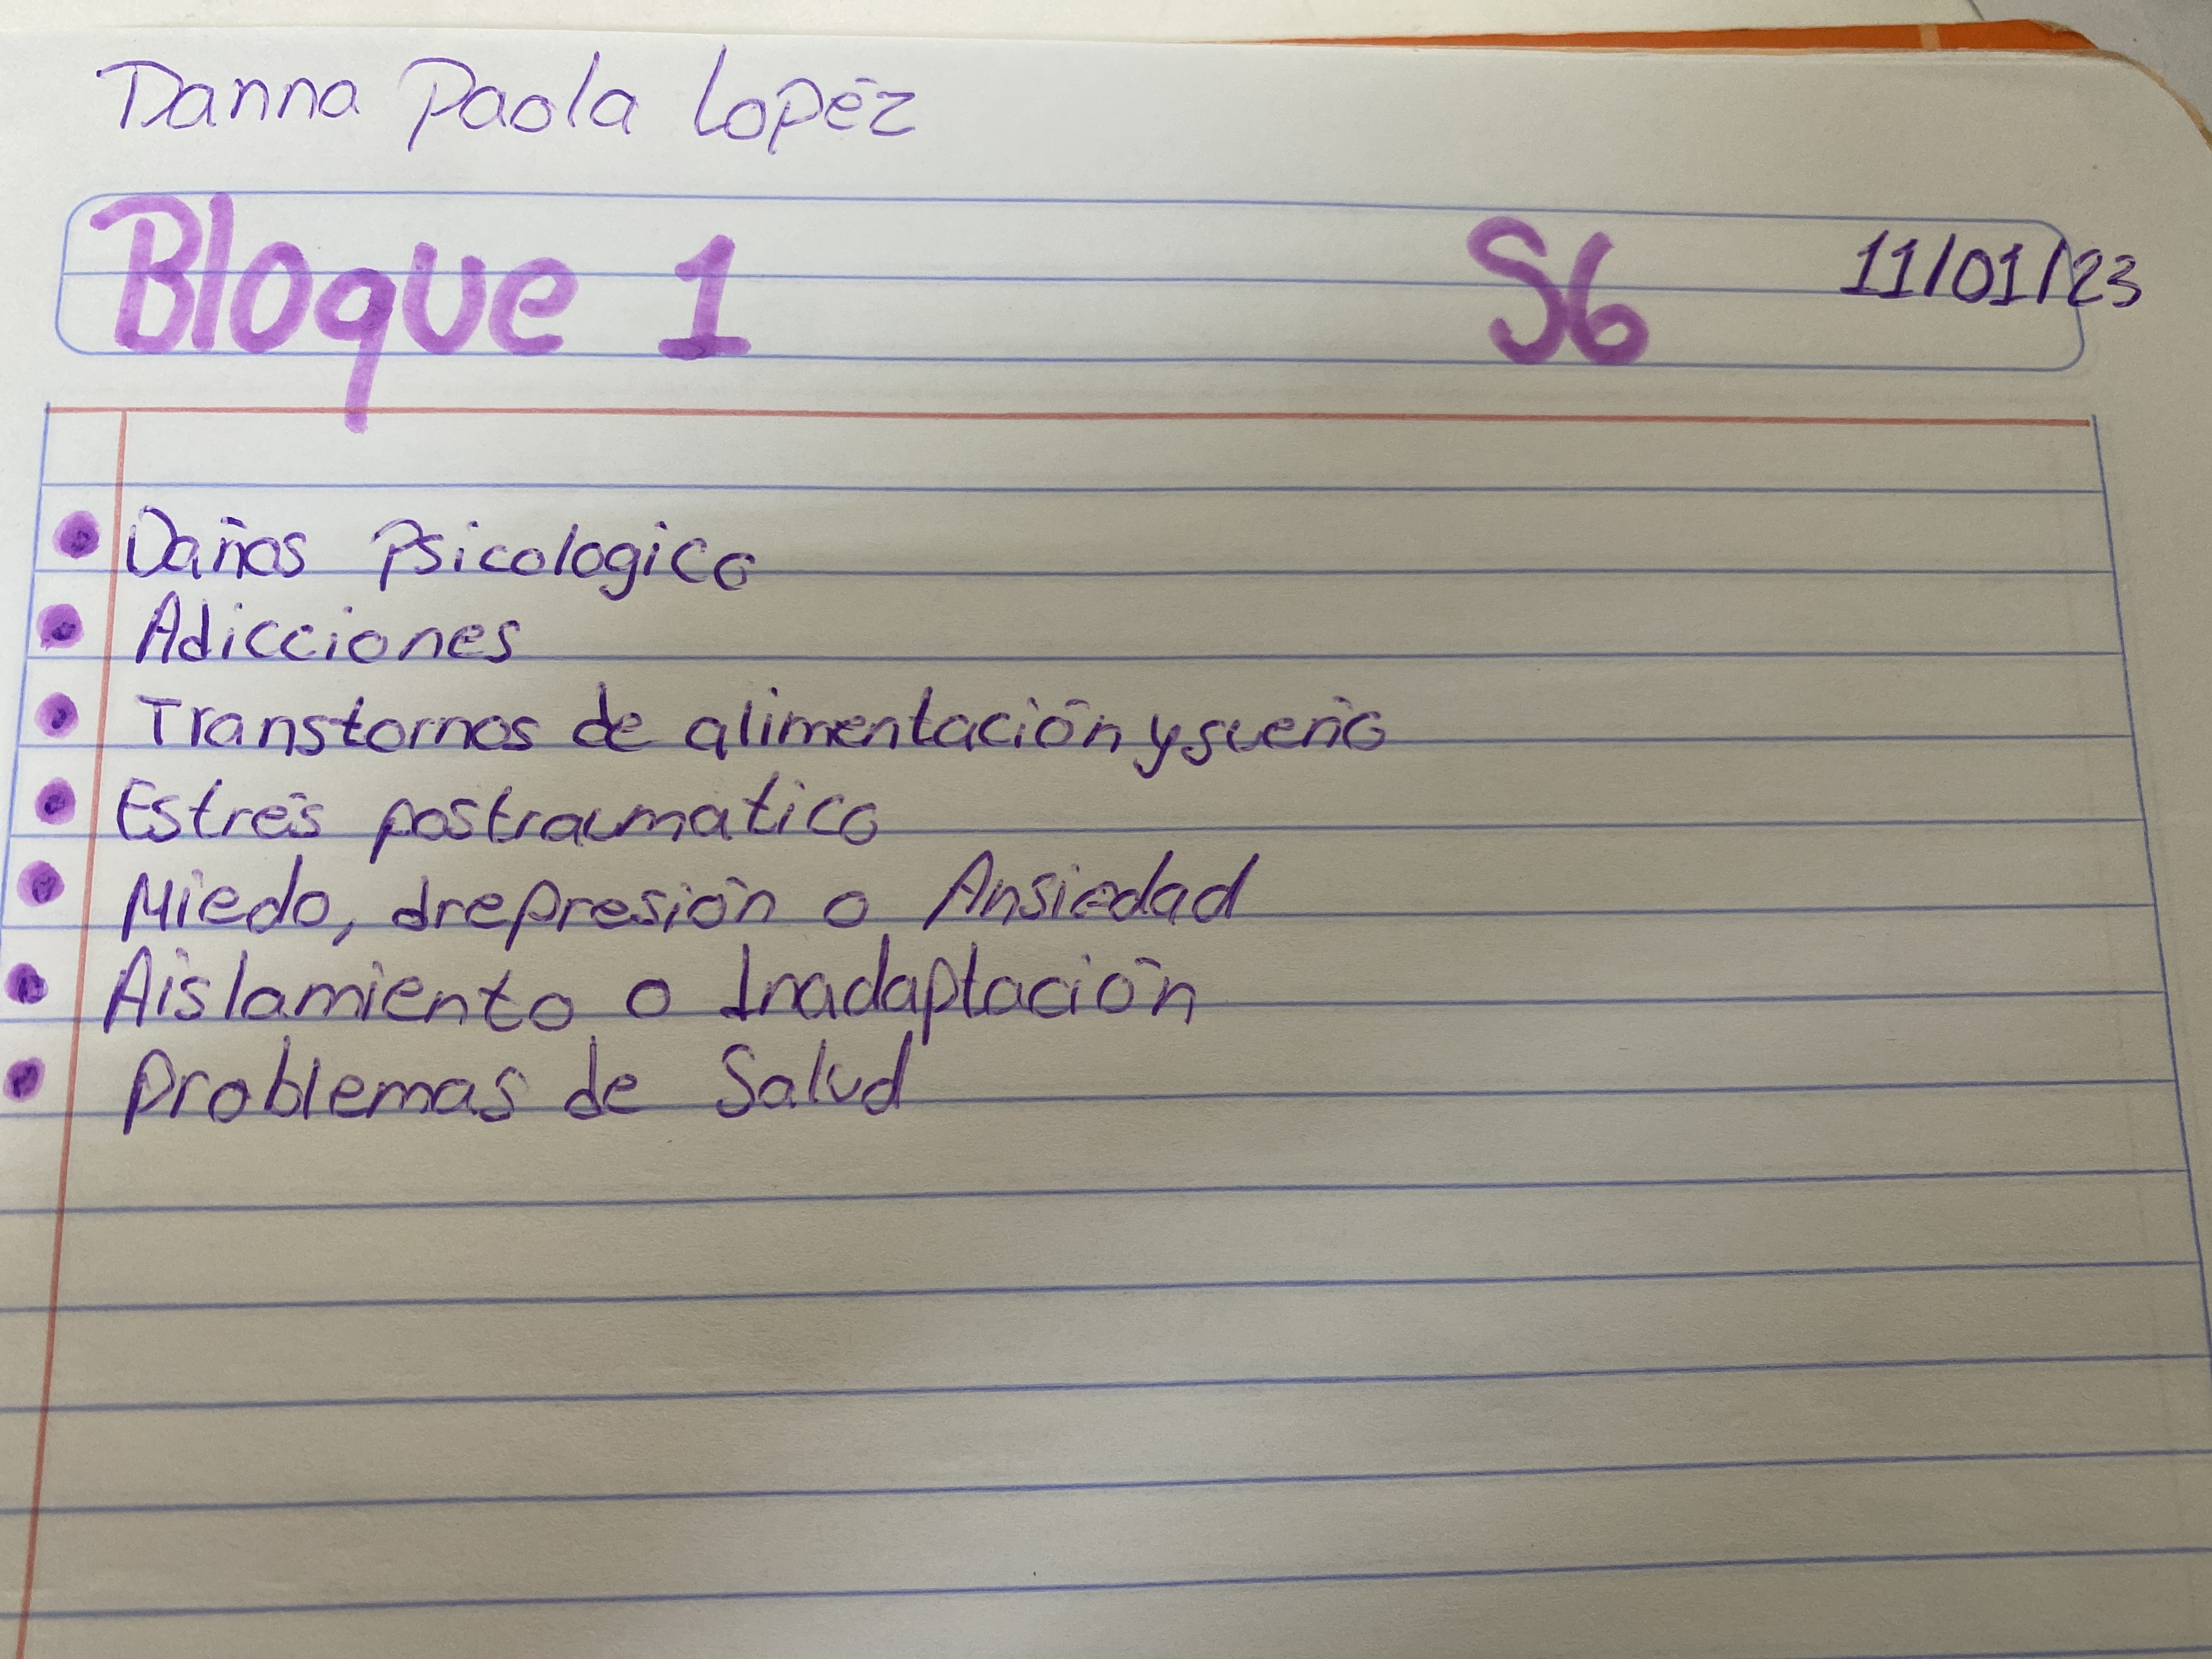 Danna Paola Lopéz
Bloque 1 S6 11/01/23
• Daños Psicologico
• Adicciones
• Transtornos de alimentación y sueño
• Estrés postraumatico
• Miedo, drepresión o Ansiedad
• Aislamiento o Inadaptación
• Problemas de Salud